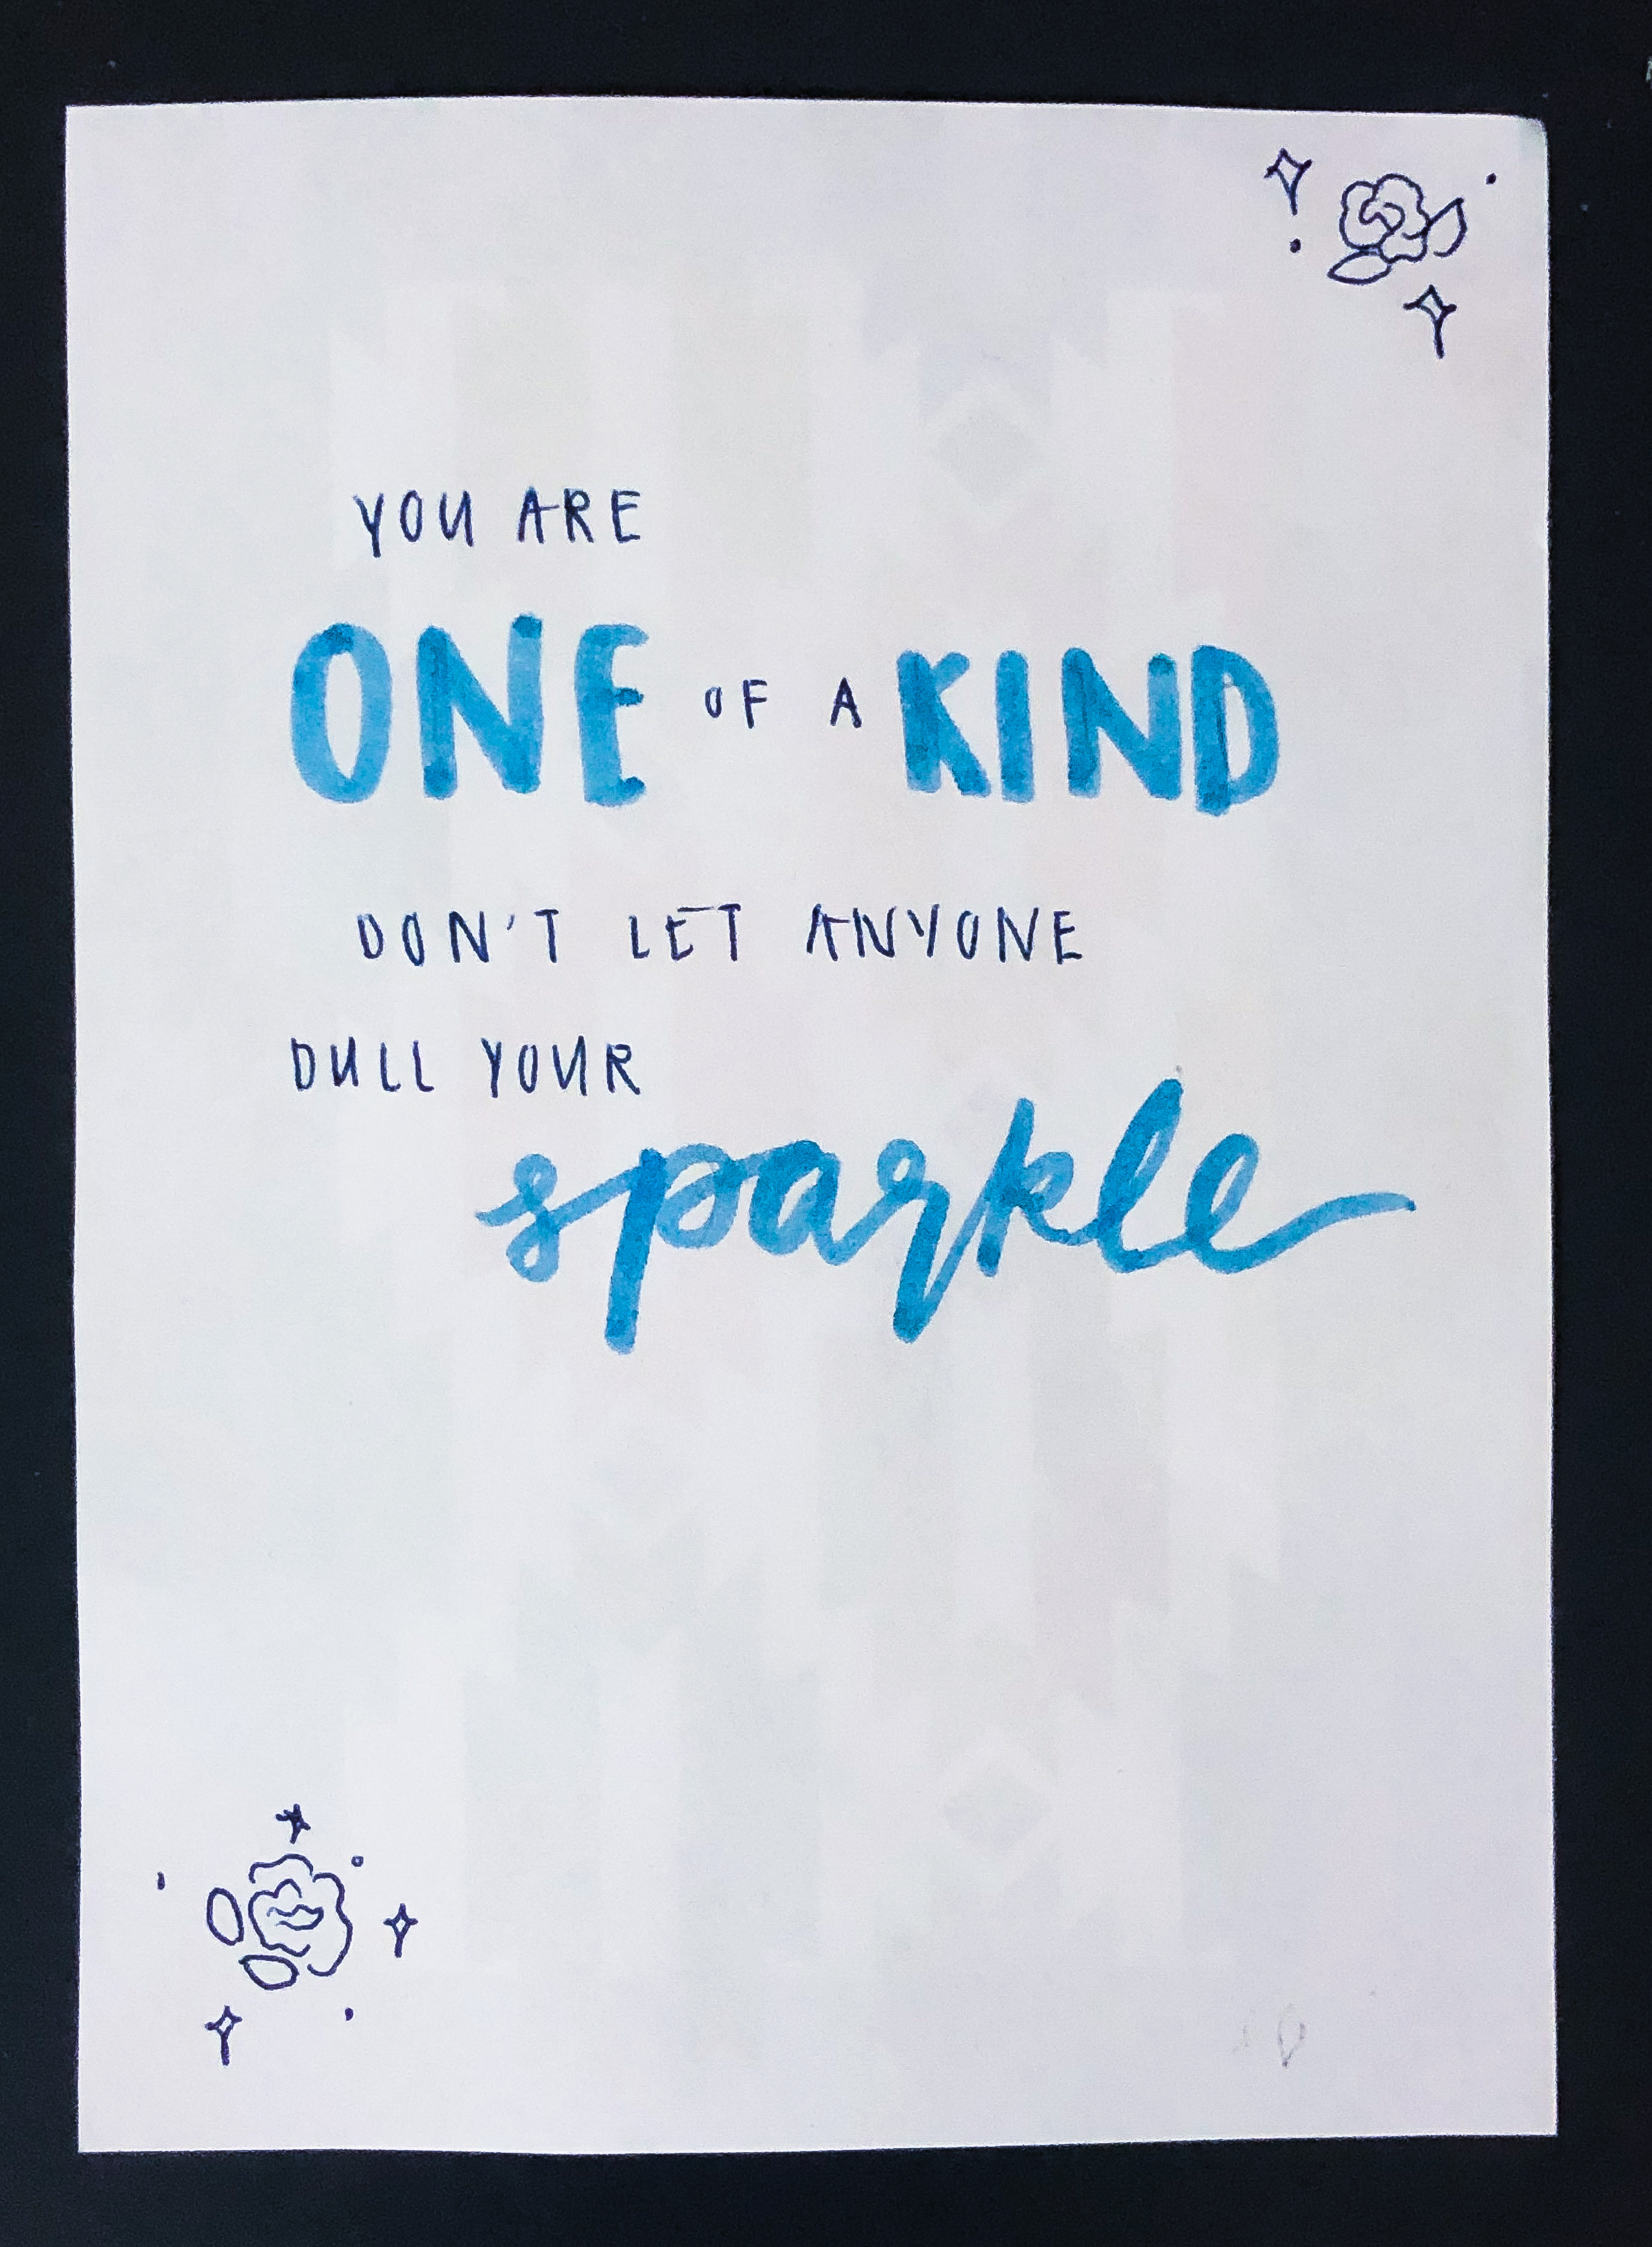 YOU ARE
ONE OF A KIND
DON'T LET ANYONE
DULL YOUR
sparkle